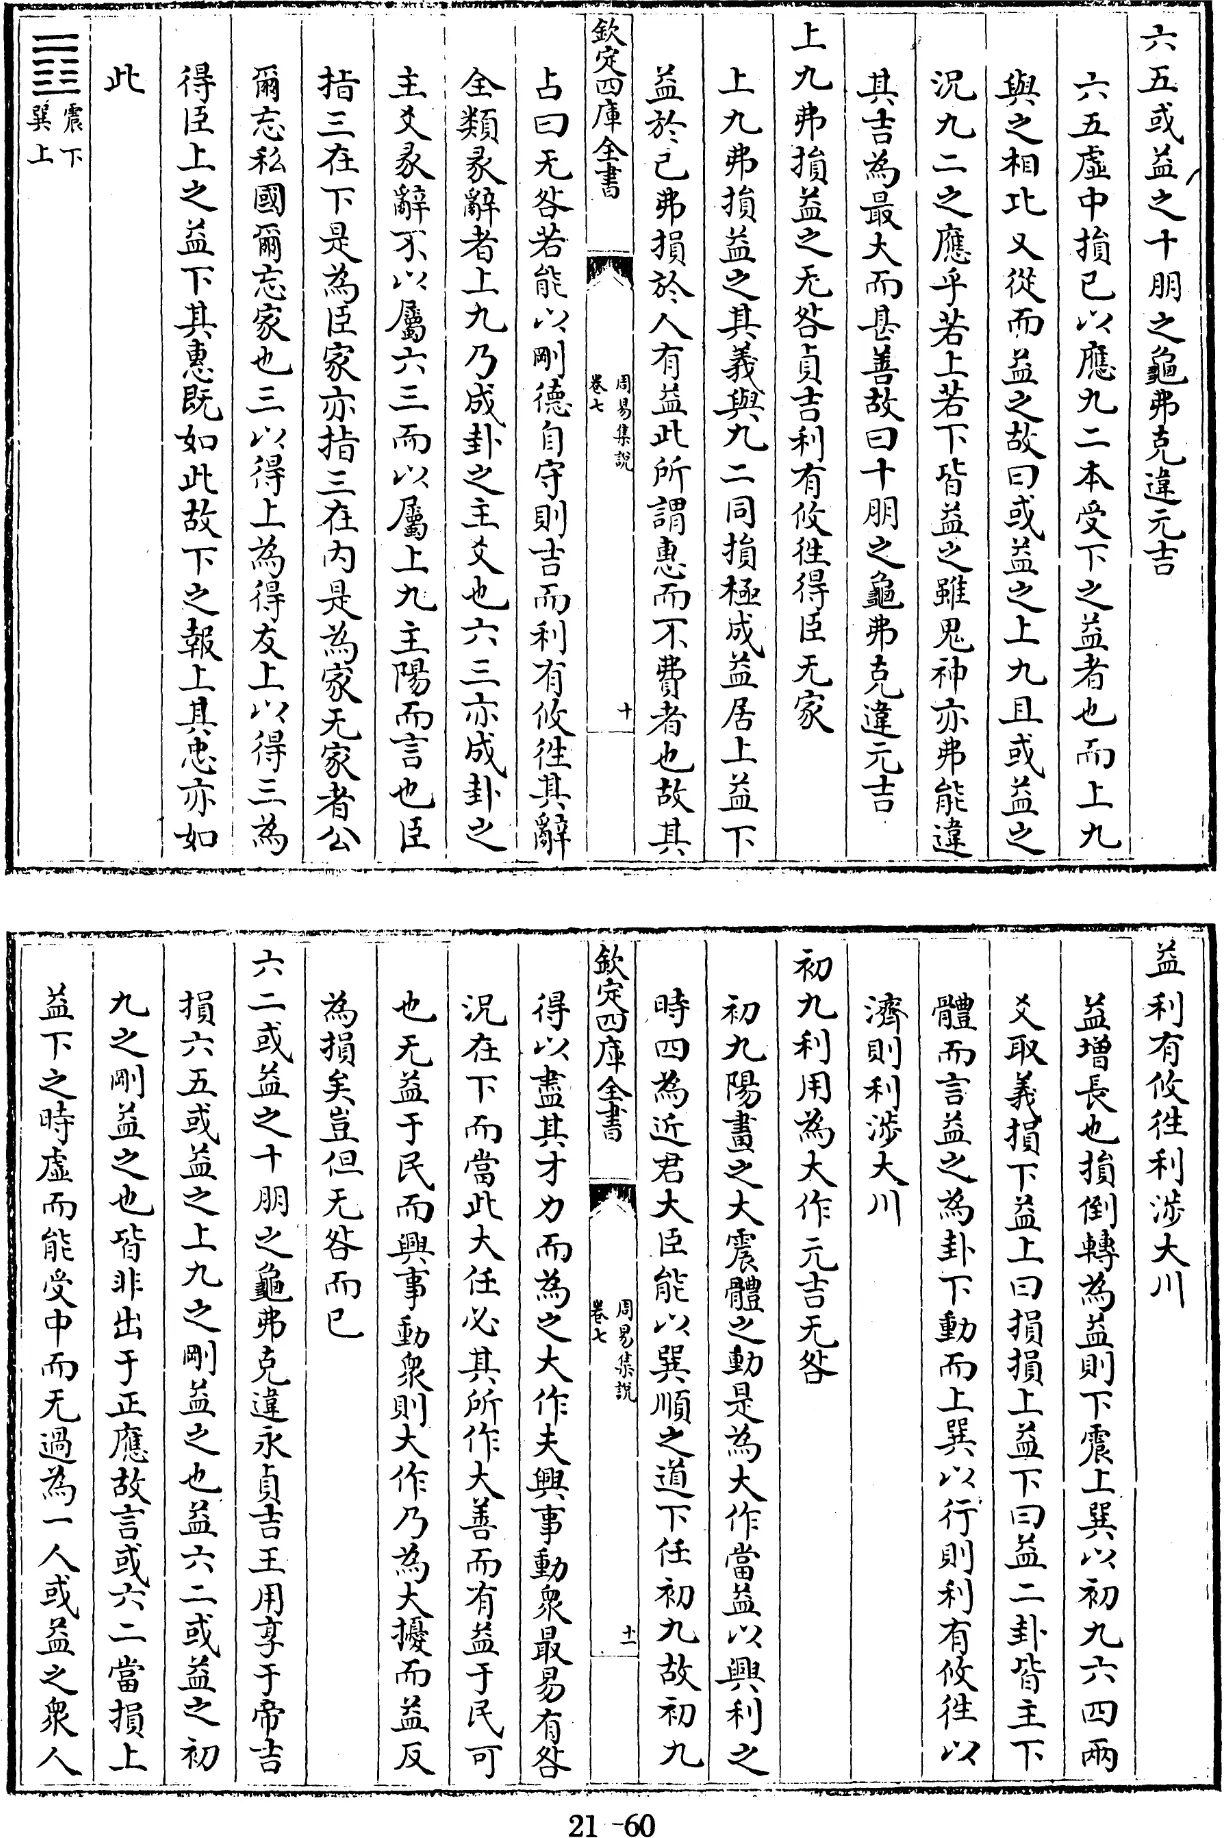 六五或益之十朋之龜弗克違元吉
六五虛中損已以應九二本受下之益者也而上九
與之相比又從而益之故曰或益之上九且或益之
況九二之應乎若上若下皆益之雖鬼神亦弗能違
其吉為最大而甚善故曰十朋之龜弗克違元吉
上九弗損益之无咎貞吉利有攸徃得臣无家
上九弗損益之其義與九二同損極成益居上益下
益於已弗損於人有益此所謂惠而不費者也故其
欽定四庫全書
周易集說
卷七
十
占曰无咎若能以剛德自守則吉而利有攸徃其辭
全類彖辭者上九乃成卦之主爻也六三亦成卦之
主爻彖辭不以屬六三而以屬上九主陽而言也臣
指三在下是為臣家亦指三在内是為家无家者公
爾忘私國爾忘家也三以得上為得友上以得三為
得臣上之益下其惠既如此故下之報上其忠亦如
此
䷩
震下
巽上
益利有攸徃利涉大川
益增長也損倒轉為益則下震上巽以初九六四兩
爻取義損下益上曰損損上益下曰益二卦皆主下
體而言益之為卦下動而上巽以行則利有攸徃以
濟則利涉大川
初九利用為大作元吉无咎
初九陽畫之大震體之動是為大作當益以興利之
時四為近君大臣能以巽順之道下任初九故初九
欽定四庫全書
周易集說
卷七
十一
得以盡其才力而為之大作夫興事動衆最易有咎
況在下而當此大任必其所作大善而有益于民可
也无益于民而興事動衆則大作乃為大擾而益反
為損矣豈但无咎而已
六二或益之十朋之龜弗克違永貞吉王用享于帝吉
損六五或益之上九之剛益之也益六二或益之初
九之剛益之也皆非出于正應故言或六二當損上
益下之時虛而能受中而无過為一人或益之衆人
21-60